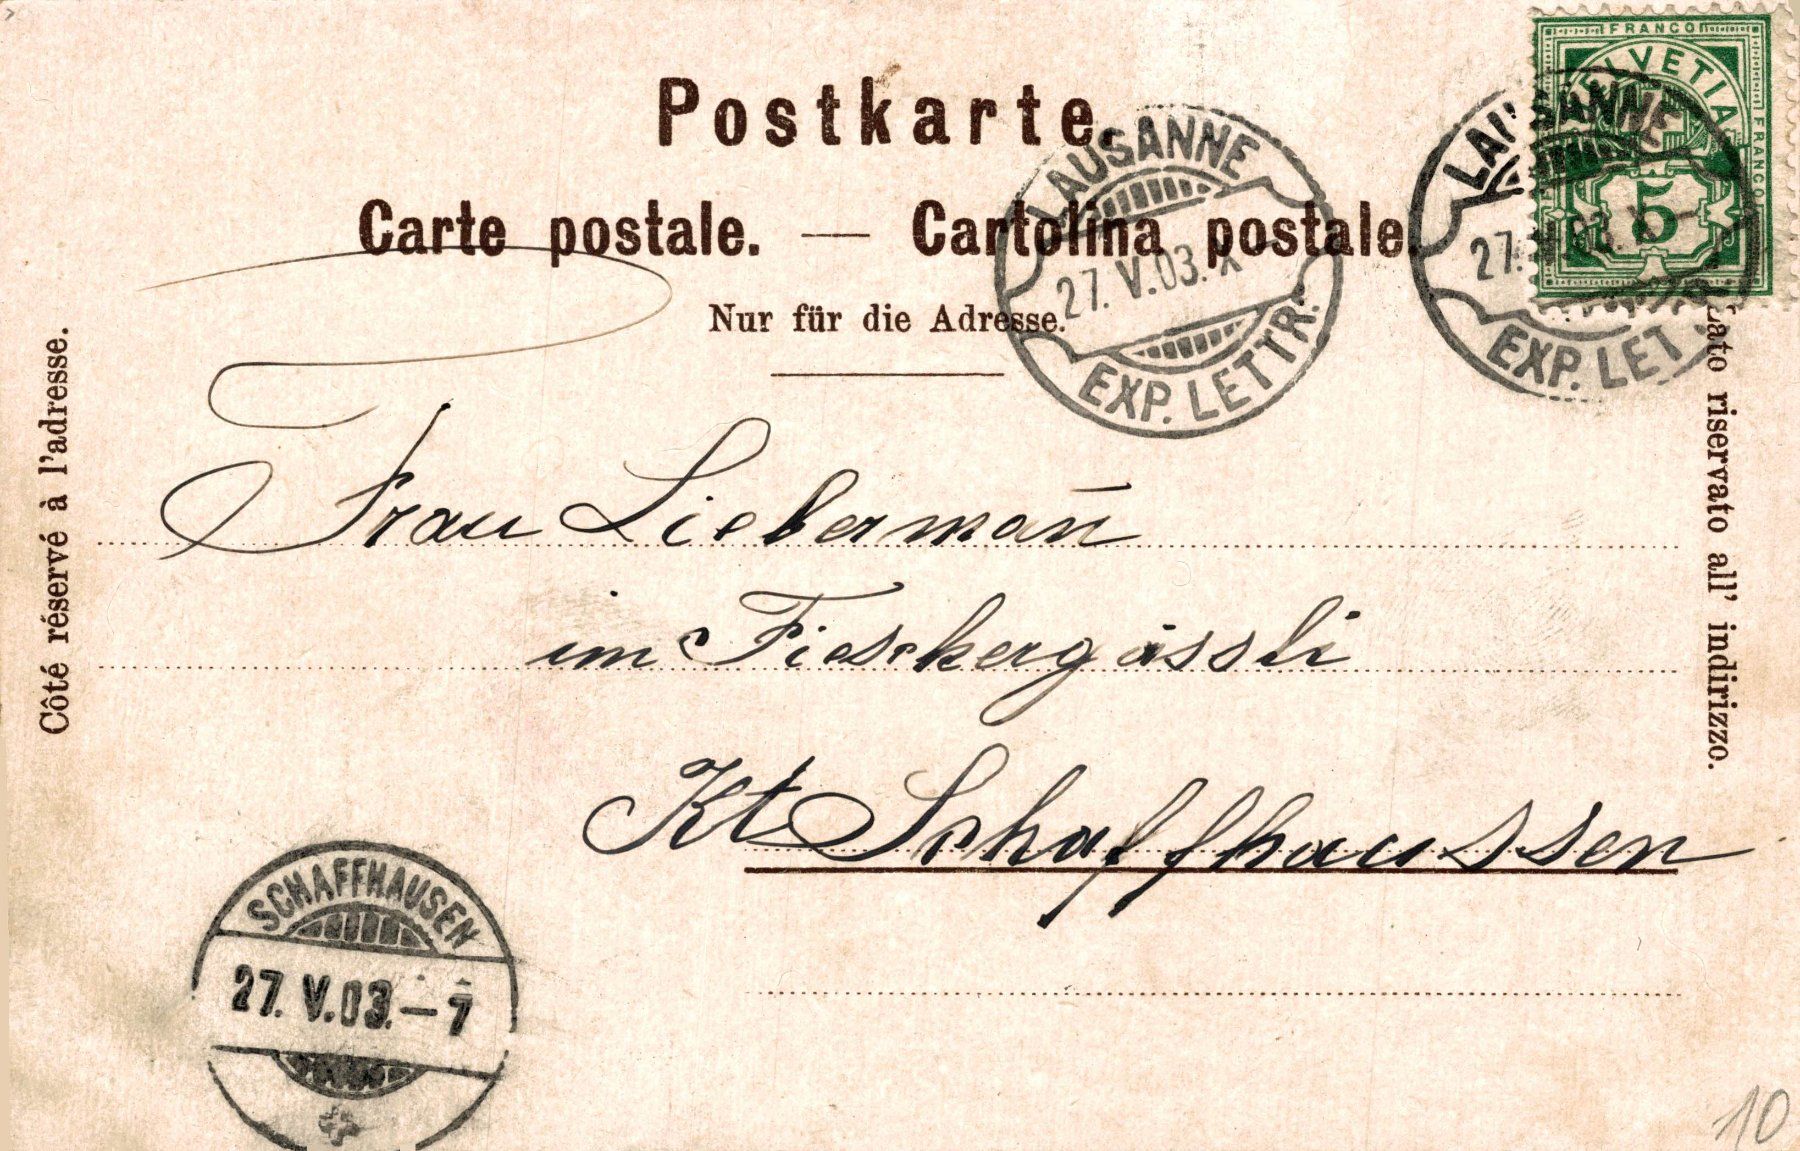 Postkarte.
Carte postale. — Cartolina postale.
Nur für die Adresse.
Côté réservé à l'adresse.
Lato riservato all' indirizzo.
FRANCO
HELVETIA
FRANCO
5
LAUSANNE
27. V. 03. X –
EXP. LETTR.
LAUSANNE
27. V. 03. X –
EXP. LET
Frau Liebermañ
im Fieserkergässli
Kt Schaffhaussen
SCHAFFHAUSEN
27. V. 03. – 7
10